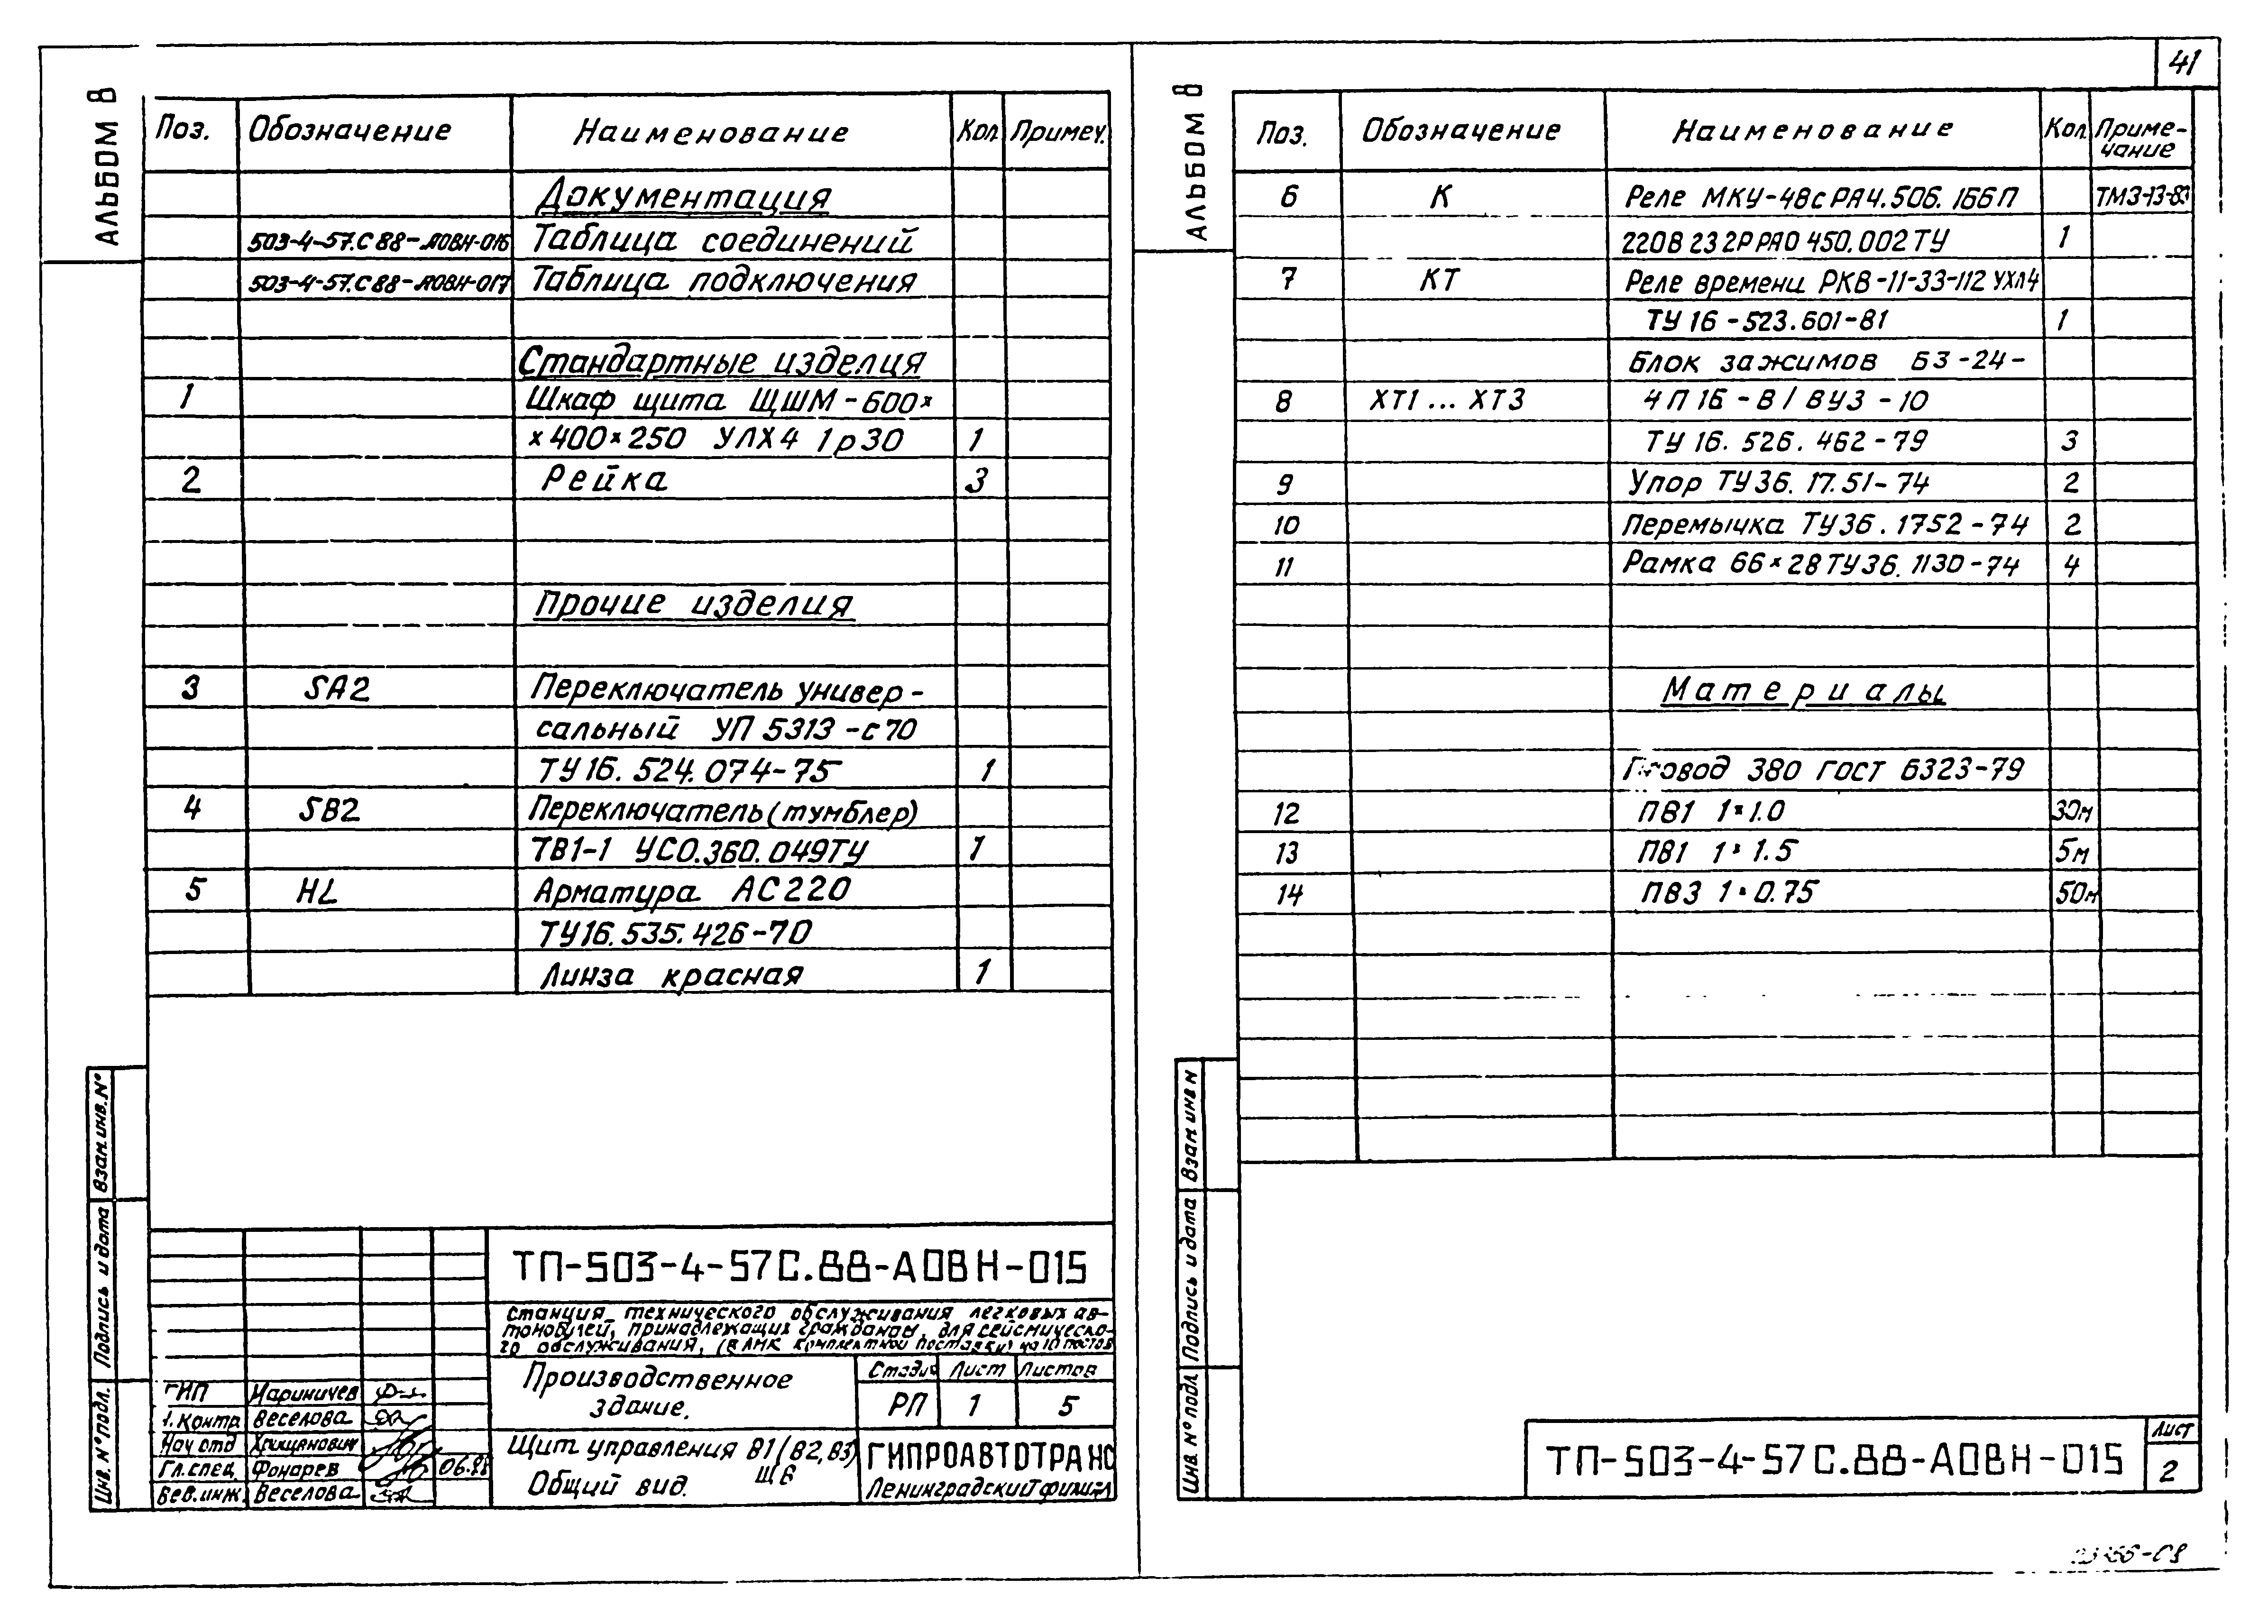 АЛЬБОМ 8
Поз. Обозначение Наименование Кол. Примеч.
Документация
503-4-57.С88-АОВН-016 Таблица соединений
503-4-57.С88-АОВН-017 Таблица подключения
Стандартные изделия
1 Шкаф щита ЩШМ-600×
×400×250 УЛХ4 1р30 1
2 Рейка 3
Прочие изделия
3 SA2 Переключатель универ-
сальный УП 5313-с70
ТУ16.524.074-75 1
4 SB2 Переключатель (тумблер)
ТВ1-1 УСО.360.049ТУ 1
5 HL Арматура АС220
ТУ16.535.426-70
Линза красная 1
Взам.инв.№
Подпись и дата
Инв.№ подл.
ТП-503-4-57С.88-АОВН-015
станция технического обслуживания легковых ав-
томобилей, принадлежащих гражданам, для сейсмическо-
го обслуживания, (в ЛМК комплектной поставки) на 10 постов
Производственное
здание.
Стадия Лист Листов
РП 1 5
Щит управления В1(В2,В3)
Щ6
Общий вид.
ГИПРОАВТОТРАНС
Ленинградский филиал
ГИП Мариничев
Н.контр Веселова
Нач отд Хрищанович
Гл.спец. Фонарев 06.88
Вед.инж. Веселова
41
АЛЬБОМ 8
Поз. Обозначение Наименование Кол. Приме-
чание
6 К Реле МКУ-48с РА4.506.166П ТМ3-13-83
220В 23 2Р РА0 450.002ТУ 1
7 КТ Реле времени РКВ-11-33-112 УХЛ4
ТУ16-523.601-81 1
Блок зажимов БЗ-24-
8 ХТ1...ХТ3 4П16-В/ВУ3-10
ТУ16.526.462-79 3
9 Упор ТУ36.17.51-74 2
10 Перемычка ТУ36.1752-74 2
11 Рамка 66×28 ТУ36.1130-74 4
Материалы
Провод 380 ГОСТ 6323-79
12 ПВ1 1×1.0 30м
13 ПВ1 1×1.5 5м
14 ПВ3 1×0.75 50м
Взам инв N
Подпись и дата
Инв.№ подл.
ТП-503-4-57С.88-АОВН-015
Лист
2